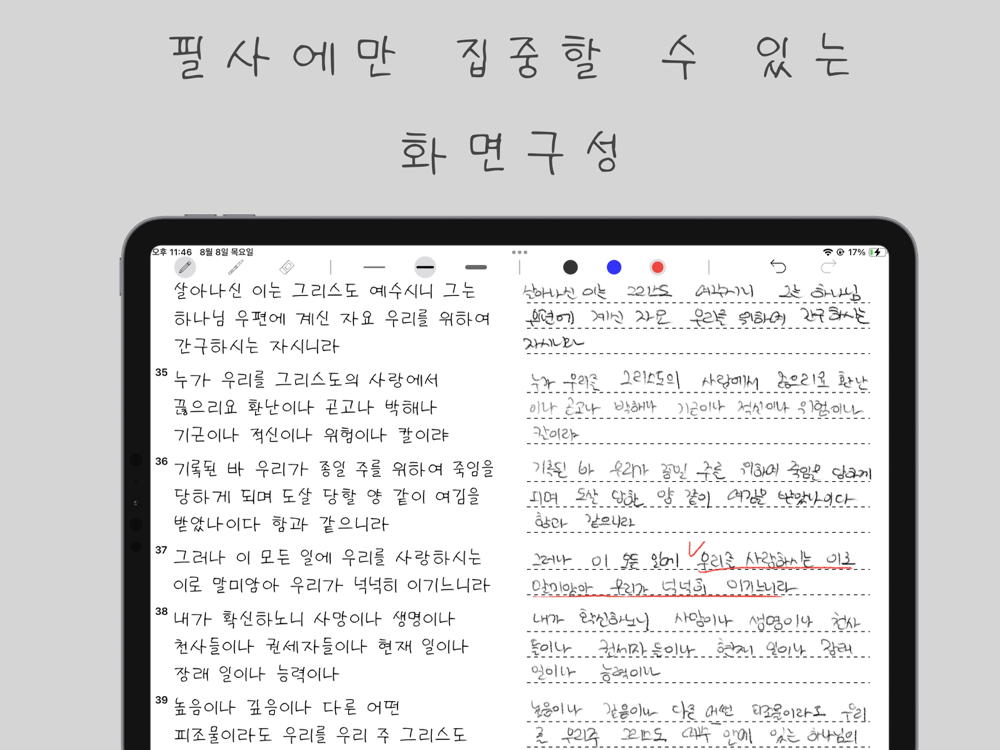 필사에만 집중할 수 있는
화면구성
오후 11:46 8월 8일 목요일
17%
살아나신 이는 그리스도 예수시니 그는
하나님 우편에 계신 자요 우리를 위하여
간구하시는 자시니라
35 누가 우리를 그리스도의 사랑에서
끊으리요 환난이나 곤고나 박해나
기근이나 적신이나 위험이나 칼이랴
36 기록된 바 우리가 종일 주를 위하여 죽임을
당하게 되며 도살 당할 양 같이 여김을
받았나이다 함과 같으니라
37 그러나 이 모든 일에 우리를 사랑하시는
이로 말미암아 우리가 넉넉히 이기느니라
38 내가 확신하노니 사망이나 생명이나
천사들이나 권세자들이나 현재 일이나
장래 일이나 능력이나
39 높음이나 깊음이나 다른 어떤
피조물이라도 우리를 우리 주 그리스도
살아나신 이는 그리스도 예수시니 그는 하나님
우편에 계신 자요 우리를 위하여 간구하시는
자시니라
누가 우리를 그리스도의 사랑에서 끊으리요 환난
이나 곤고나 박해나 기근이나 적신이나 위험이나
칼이랴
기록된 바 우리가 종일 주를 위하여 죽임을 당하게
되며 도살 당할 양 같이 여김을 받았나이다
함과 같으니라
그러나 이 모든 일에 우리를 사랑하시는 이로
말미암아 우리가 넉넉히 이기느니라
내가 확신하노니 사망이나 생명이나 천사
들이나 권세자들이나 현재 일이나 장래
일이나 능력이나
높음이나 깊음이나 다른 어떤 피조물이라도 우리
를 우리 주 그리스도 예수 안에 있는 하나님의